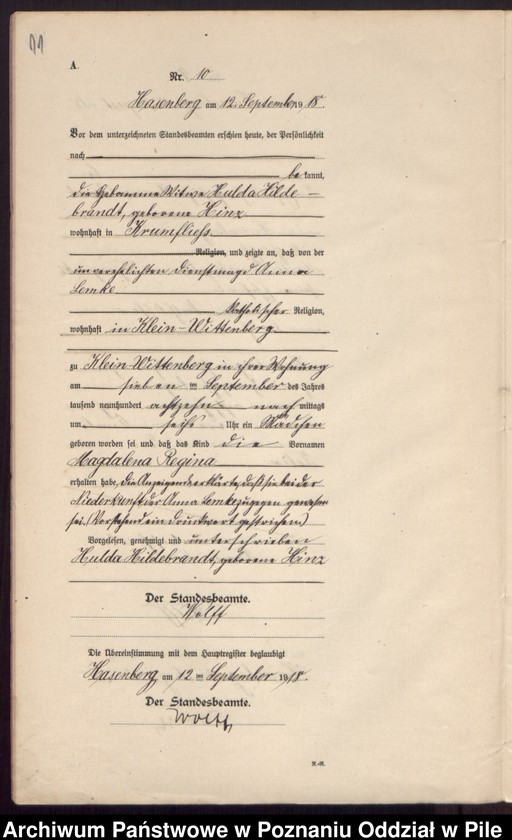 11
A.
Nr. 10
Hasenberg am 12 September 1918.
Vor dem unterzeichneten Standesbeamten erschien heute, der Persönlichkeit
nach
be kannt,
die Hebamme Witwe Hulda Hilde-
brandt, geborene Hinz
wohnhaft in Krumfliess
Religion, und zeigte an, daß von der
unverehelichten Dienstmagd Anna
Lemke
katholischer Religion,
wohnhaft in Klein-Wittenberg
zu Klein-Wittenberg in ihrer Wohnung
am sieben ten September des Jahres
tausend neunhundert achtzehn nach mittags
um sechs Uhr ein Mädchen
geboren worden sei und daß das Kind die Vornamen
Magdalena Regina
erhalten habe, die Anzeigende erklärte, daß sie bei der
Niederkunft der Anna Lemke zugegen gewesen
sei. (Vorstehend ein Druckwort gestrichen)
Vorgelesen, genehmigt und unterschrieben
Hulda Hildebrandt, geborene Hinz
Der Standesbeamte.
Wolff
Die Übereinstimmung mit dem Hauptregister beglaubigt
Hasenberg, am 12 ten September 1918.
Der Standesbeamte.
Wolff
Archiwum Państwowe w Poznaniu Oddział w Pile